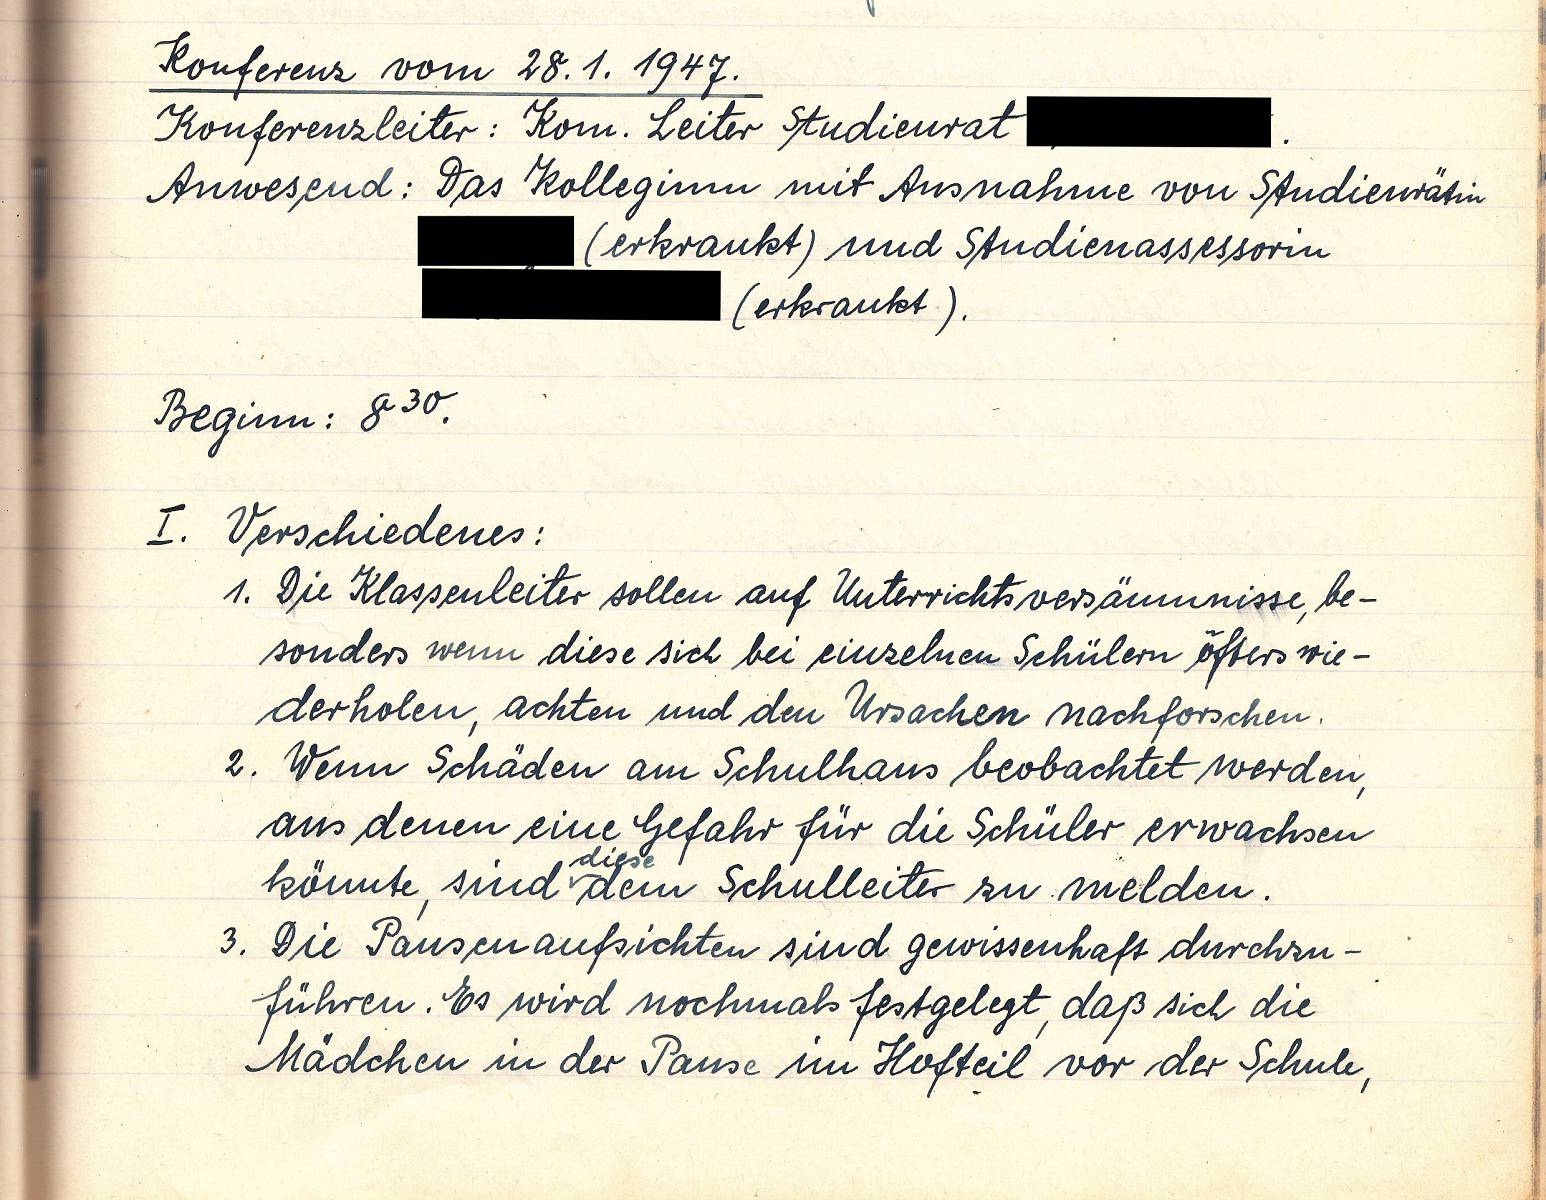 Konferenz vom 28. 1. 1947.
Konferenzleiter: Kom. Leiter Studienrat .
Anwesend: Das Kollegium mit Ausnahme von Studienrätin
(erkrankt) und Studienassessorin
(erkrankt).
Beginn: 8 30.
I. Verschiedenes:
1. Die Klassenleiter sollen auf Unterrichtsversäumnisse, be-
sonders wenn diese sich bei einzelnen Schülern öfters wie-
derholen, achten und den Ursachen nachforschen.
2. Wenn Schäden am Schulhaus beobachtet werden,
aus denen eine Gefahr für die Schüler erwachsen
könnte, sind diese dem Schulleiter zu melden.
3. Die Pausenaufsichten sind gewissenhaft durchzu-
führen. Es wird nochmals festgelegt, daß sich die
Mädchen in der Pause im Hofteil vor der Schule,